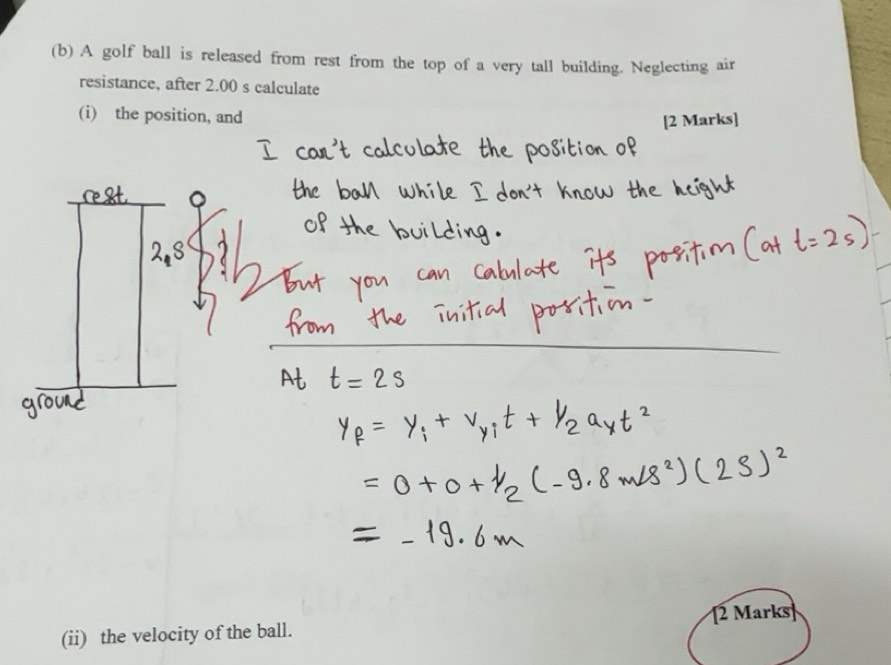 (b) A golf ball is released from rest from the top of a very tall building. Neglecting air
resistance, after 2.00 s calculate
(i) the position, and
[2 Marks]
I can't calculate the position of
the ball while I don't know the height
of the building.
rest
2,s
ground
But you can calculate its position (at t=2s)
from the initial position-
At t = 2s
yf = yi + vyit + 1/2 ayt²
= 0 + 0 + 1/2 (-9.8 m/s²)(2s)²
= -19.6m
[2 Marks]
(ii) the velocity of the ball.